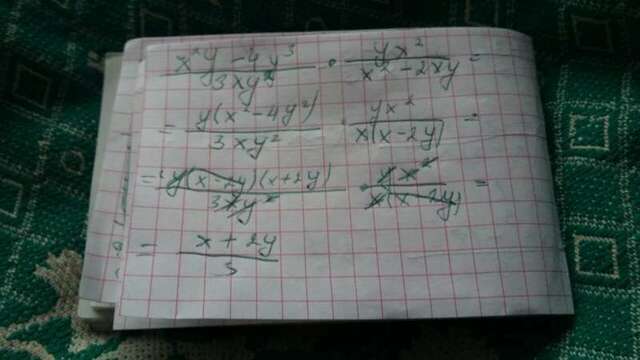 (x²y - 4y³)/(3xy²) · (yx²)/(x² - 2xy) =
= (y(x² - 4y²))/(3xy²) · (yx²)/(x(x - 2y)) =
= (y(x - 2y)(x + 2y))/(3xy²) · (yx²)/(x(x - 2y)) =
= (x + 2y)/3